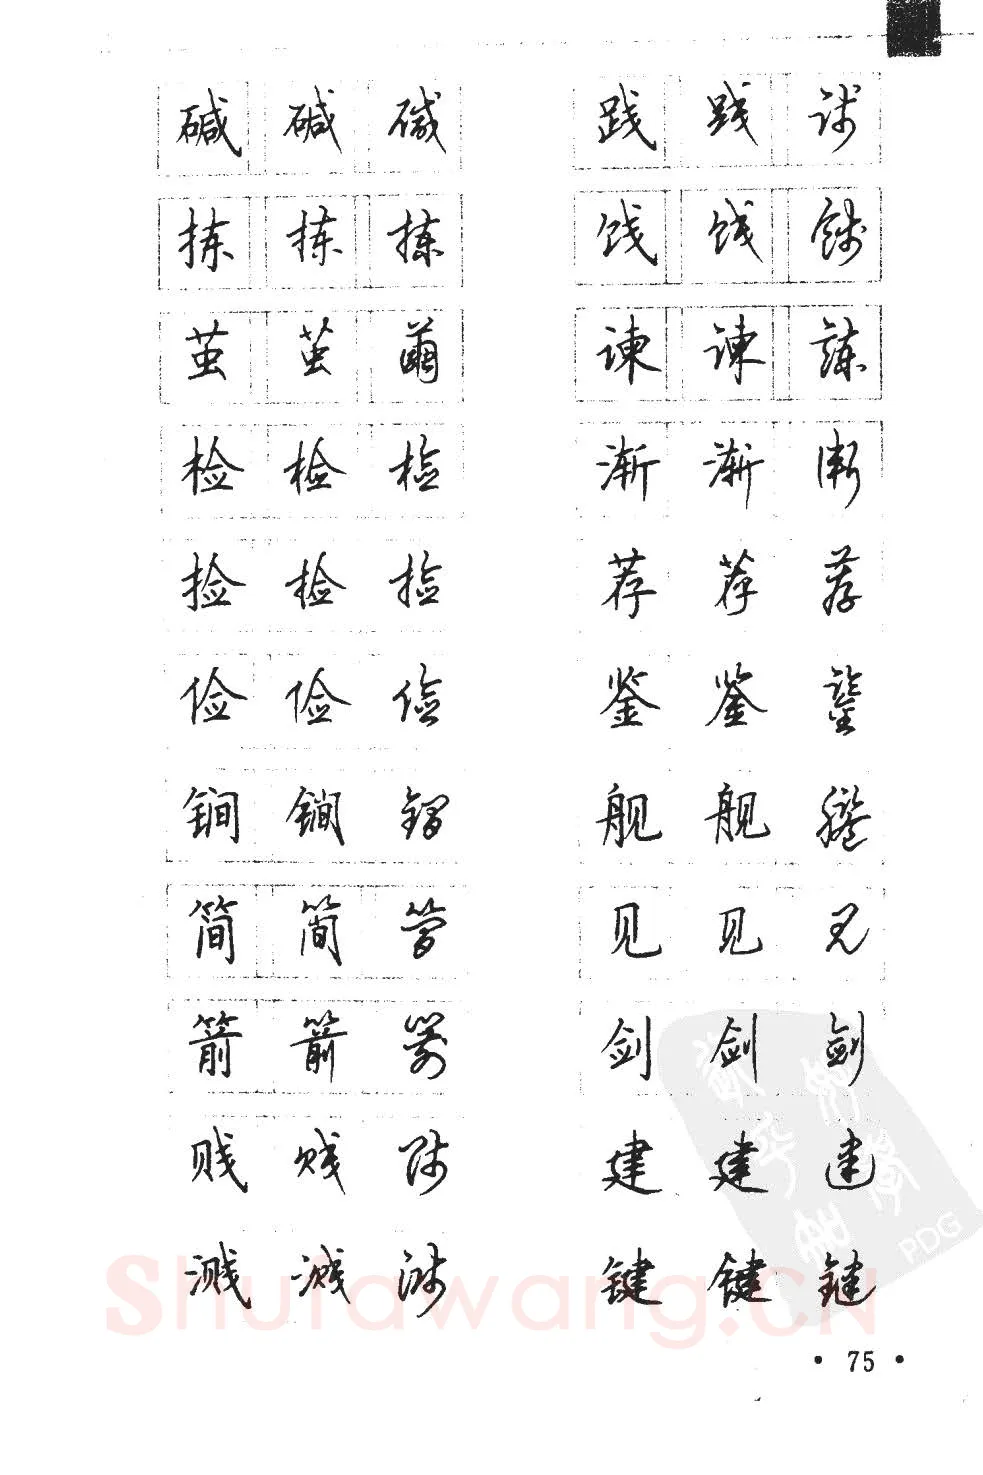 碱 碱 碱
拣 拣 拣
茧 茧 繭
检 检 检
捡 捡 捡
俭 俭 俭
锏 锏 锏
简 简 简
箭 箭 箭
贱 贱 贱
溅 溅 溅
践 践 践
饯 饯 饯
谏 谏 谏
渐 渐 渐
荐 荐 荐
鉴 鉴 鉴
舰 舰 舰
见 见 见
剑 剑 剑
建 建 建
键 键 键
Shufawang.CN
PDG
• 75 •